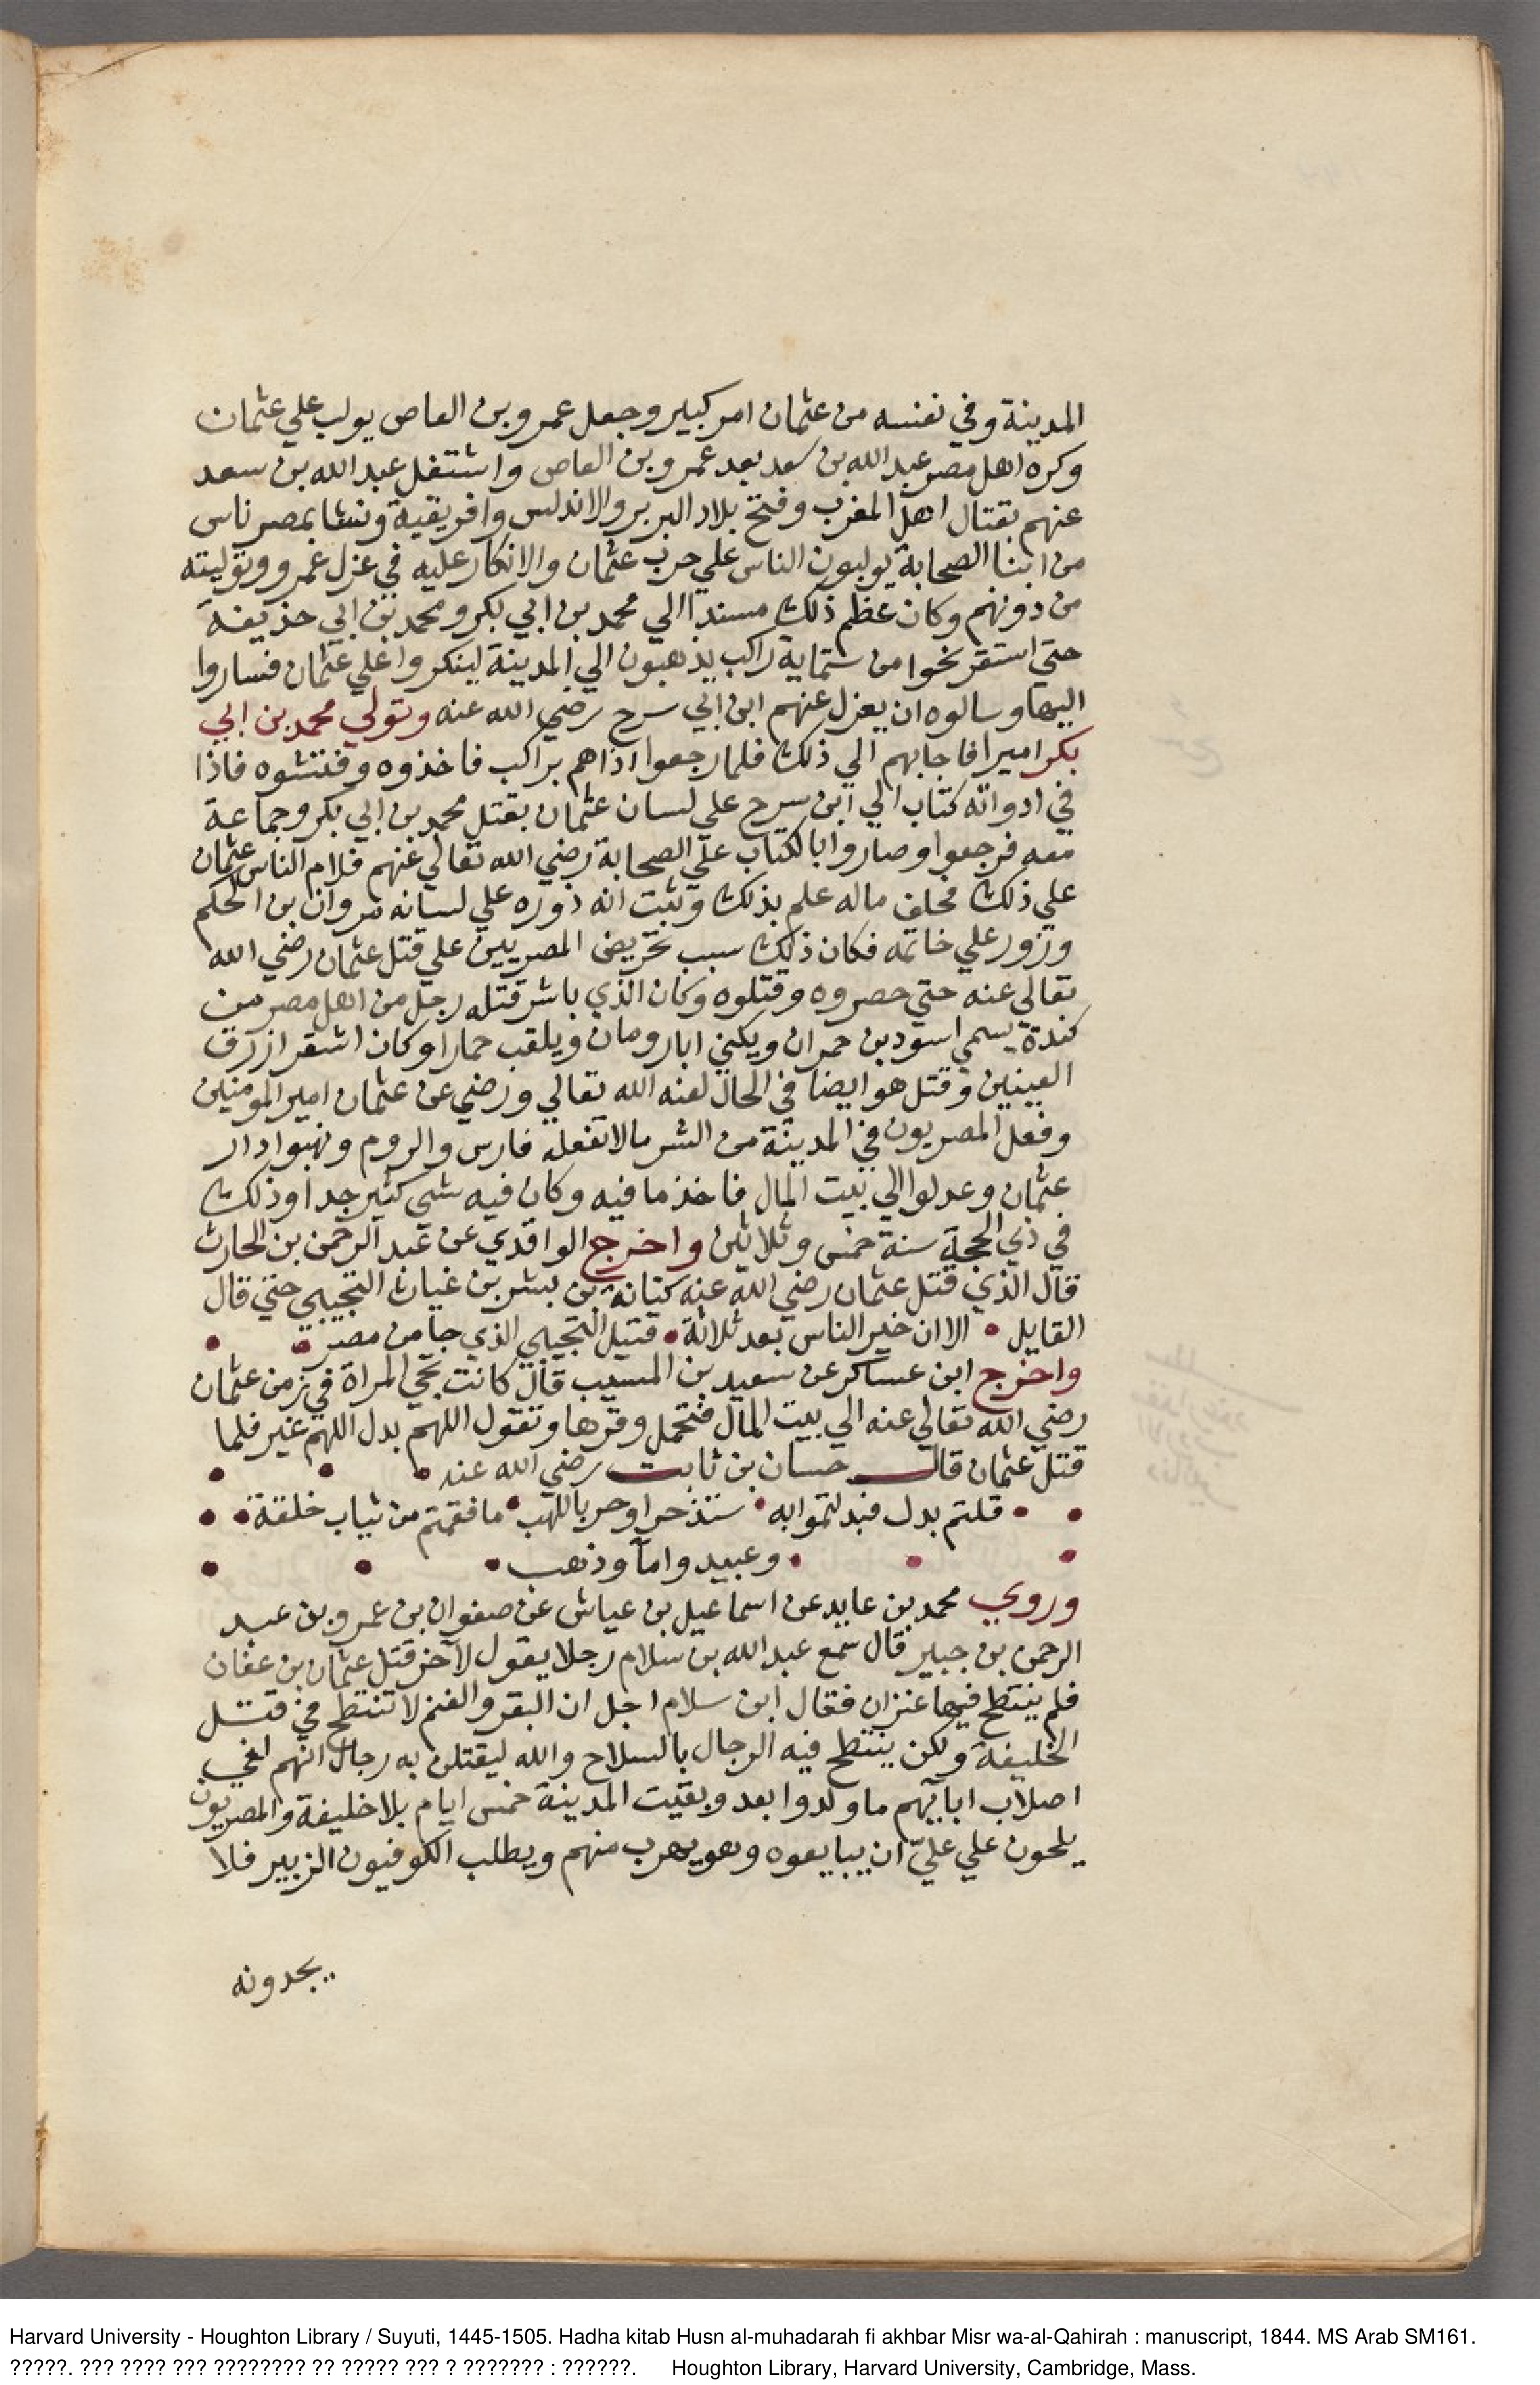 المدينة وفي نفسه من عثمان امر كبير وجعل عمرو بن العاص يولب علي عثمان
وكره اهل مصر عبد الله بن سعد بعد عمرو بن العاص واشتغل عبد الله بن سعد
عنهم بقتال اهل المغرب وفتح بلاد البربر والاندلس وافريقية ونشا بمصر ناس
من ابنا الصحابة يولبون الناس علي حرب عثمان والانكار عليه في عزل عمرو وتوليته
من دونهم وكان عظم ذلك مسندا الي محمد بن ابي بكر ومحمد بن ابي حذيفة
حتي استقر نحوا من ستماية راكب يذهبون الي المدينة لينكروا علي عثمان فساروا
اليها وسالوه ان يعزل عنهم ابن ابي سرح رضي الله عنه وتولي محمد بن ابي
بكر اميرا فاجابهم الي ذلك فلما رجعوا اذاهم براكب فاخذوه وفتشوه فاذا
في ادواته كتاب الي ابن سرح علي لسان عثمان بقتل محمد بن ابي بكر وجماعة
معه فرجعوا وصاروا بالكتاب علي الصحابة رضي الله تعالي عنهم فلام الناس عثمان
علي ذلك فحلف ماله علم بذلك وثبت انه زوره علي لسانه مروان بن الحكم
وزور علي خاتمه فكان ذلك سبب تحريض المصريين علي قتل عثمان رضي الله
تعالي عنه حتي حصروه وقتلوه وكان الذي باشر قتله رجل من اهل مصر من
كندة يسمي اسود بن حمران ويكني ابا رومان ويلقب حمارا وكان اشقر ازرق
العينين وقتل هو ايضا في الحال لعنه الله تعالي ورضي عن عثمان امير المومنين
وفعل المصريون في المدينة من الشر مالا تفعله فارس والروم ونهبوا دار
عثمان وعدلوا الي بيت المال فاخذ ما فيه وكان فيه شي كثير جدا وذلك
في ذي الحجة سنة خمس وثلاثين واخرج الواقدي عن عبد الرحمن بن الحارث
قال الذي قتل عثمان رضي الله عنه كنانة بن بشر بن غياث التجيبي حتي قال
القايل • الا ان خير الناس بعد ثلاثة • قتيل التجيبي الذي جا من مصر
واخرج ابن عساكر عن سعيد بن المسيب قال كانت تجي المراة في زمن عثمان
رضي الله تعالي عنه الي بيت المال فتحمل وقرها وتقول اللهم بدل اللهم غير فلما
قتل عثمان قال حسان بن ثابت رضي الله عنه
قلتم بدل فبدلتموا به • سنذ حرا وحربا للهب • ما فقمتم من ثياب خلقة
وعبيد وامآ وذهب
وروي محمد بن عايد عن اسماعيل بن عياش عن صفوان بن عمرو بن عبد
الرحمن بن جبير قال سمع عبد الله بن سلام رجلا يقول لآخر قتل عثمان بن عفان
فلم ينتطح فيها عنزان فقال ابن سلام اجل ان البقر والغنم لا تنتطح في قتل
الخليفة ولكن ينتطح فيه الرجال بالسلاح والله ليقتلن به رجال انهم لفي
اصلاب ابآيهم ما ولدوا بعد وبقيت المدينة خمس ايام بلا خليفة والمصريون
يلحون علي عليّ ان يبايعوه وهو يهرب منهم ويطلب الكوفيون الزبير فلا
يجدونه
Harvard University - Houghton Library / Suyuti, 1445-1505. Hadha kitab Husn al-muhadarah fi akhbar Misr wa-al-Qahirah : manuscript, 1844. MS Arab SM161.
?????. ??? ???? ??? ???????? ?? ????? ??? ? ??????? : ??????. Houghton Library, Harvard University, Cambridge, Mass.